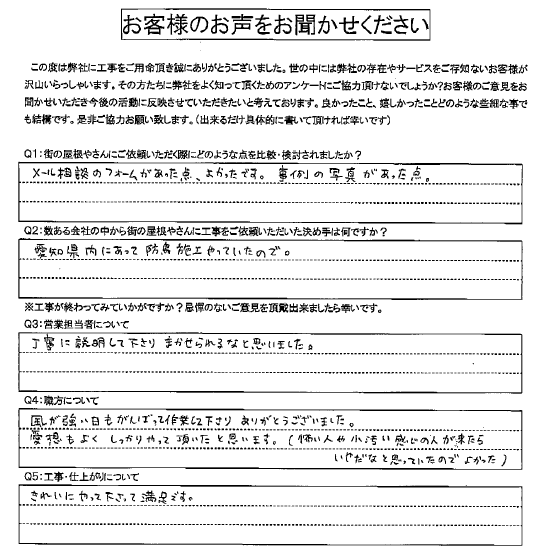 お客様のお声をお聞かせください
この度は弊社に工事をご用命頂き誠にありがとうございました。世の中には弊社の存在やサービスをご存知ないお客様が
沢山いらっしゃいます。その方たちに弊社をよく知って頂くためのアンケートにご協力頂けないでしょうか?お客様のご意見をお
聞かせいただき今後の活動に反映させていただきたいと考えております。良かったこと、嬉しかったことどのような些細な事で
も結構です。是非ご協力お願い致します。(出来るだけ具体的に書いて頂ければ幸いです)
Q1:街の屋根やさんにご依頼いただく際にどのような点を比較・検討されましたか?
メール相談のフォームがあった点、よかったです。事例の写真があった点。
Q2:数ある会社の中から街の屋根やさんに工事をご依頼いただいた決め手は何ですか?
愛知県内にあって防鳥施工やっていたので。
※工事が終わってみていかがですか?忌憚のないご意見を頂戴出来ましたら幸いです。
Q3:営業担当者について
丁寧に説明して下さり まかせられるなと思いました。
Q4:職方について
風が強い日もがんばって作業して下さり ありがとうございました。
愛想もよく しっかりやって頂いたと思います。(怖い人や小汚い感じの人が来たら
いやだなと思っていたので よかった)
Q5:工事・仕上がりについて
きれいにやって下さって満足です。